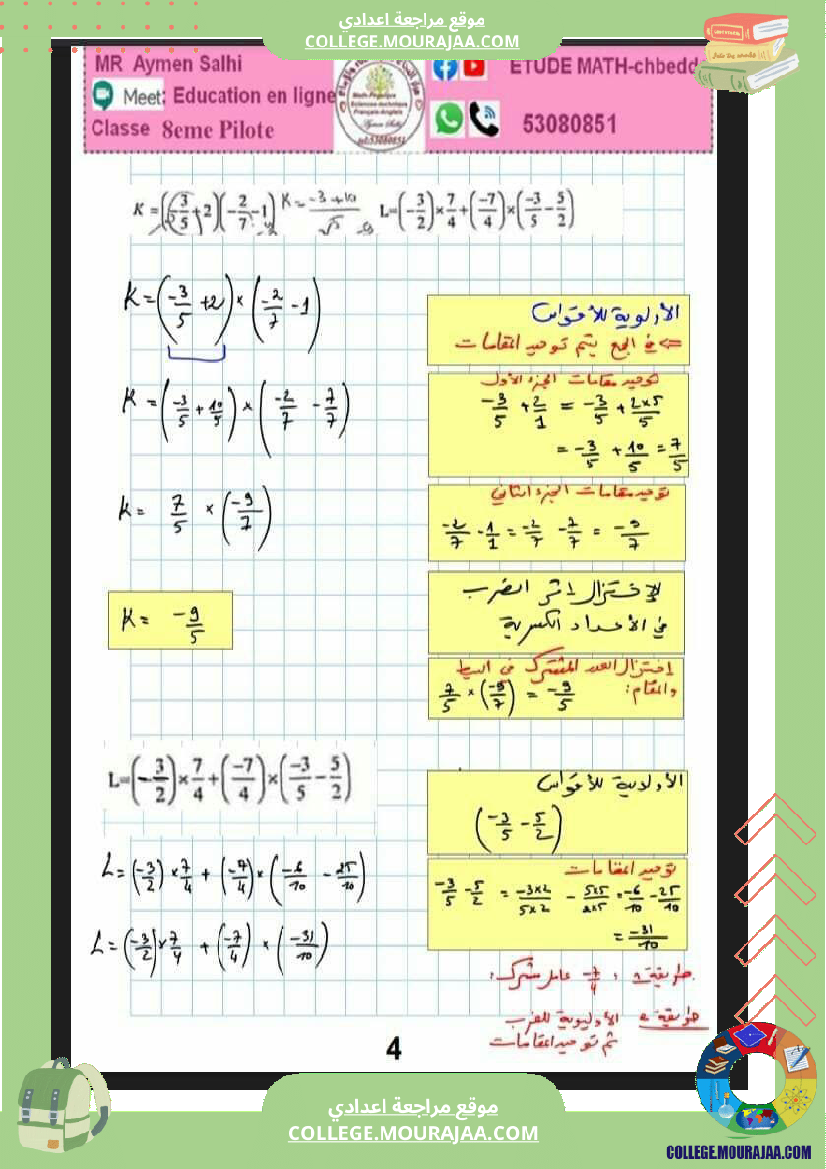 موقع مراجعة اعدادي
COLLEGE.MOURAJAA.COM
MR Aymen Salhi
Meet: Education en ligne
Classe 8eme Pilote
ETUDE MATH-chbedd
53080851
K = (-3/5 + 2)(-2/7 - 1) K = -3+10
L=(-3/2)×7/4+(-7/4)×(-3/5 - 5/2)
K = (-3/5 +2) × (-2/7 - 1)
K = (-3/5 + 10/5) × (-2/7 - 7/7)
K = 7/5 × (-9/7)
K = -9/5
الأولوية للأقواس
⇐ في الجمع يتم توحيد المقامات
توحيد مقامات الجزء الأول
-3/5 + 2/1 = -3/5 + 2×5/5
= -3/5 + 10/5 = 7/5
توحيد مقامات الجزء الثاني
-2/7 - 1/1 = -2/7 - 7/7 = -9/7
الاختزال إثر الضرب
في الأعداد الكسرية
إختزال العدد المشترك في البسط
والمقام: 7/5 × (-9/7) = -9/5
L=(-3/2)×7/4+(-7/4)×(-3/5 - 5/2)
L = (-3/2) × 7/4 + (-7/4) × (-6/10 - 25/10)
L = (-3/2) × 7/4 + (-7/4) × (-31/10)
الأولوية للأقواس
(-3/5 - 5/2)
توحيد المقامات
-3/5 - 5/2 = -3×2/5×2 - 5×5/2×5 = -6/10 - 25/10
= -31/10
طريقة 1: -7/4 عامل مشترك
طريقة 2 الأولوية للضرب
ثم توحيد المقامات
4
موقع مراجعة اعدادي
COLLEGE.MOURAJAA.COM
COLLEGE.MOURAJAA.COM